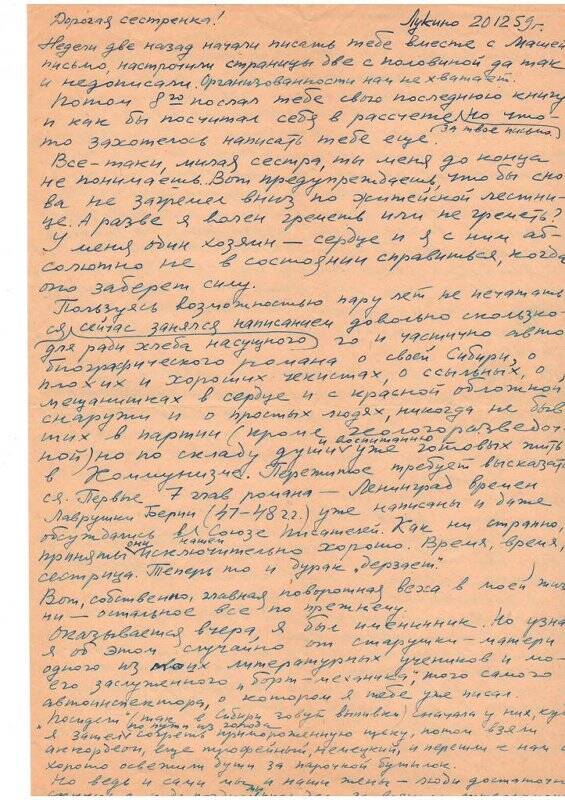 Дорогая сестренка! Лукино 20 12 59 г.
Недели две назад начали писать тебе вместе с Машей
письмо, настрочили страницы две с половиной да так
и недописали. Организованности нам не хватает.
Потом 8го послал тебе свою последнюю книгу
и как бы посчитал себя в рассчете но что-
за твое письмо
то захотелось написать тебе еще.
Все-таки, милая сестра, ты меня до конца
не понимаешь. Вот предупреждаешь, чтобы сно
ва не загремел вниз по житейской лестни-
це. А разве я волен греметь или не греметь?
У меня один хозяин — сердце и я с ним аб-
солютно не в состоянии справиться, когда
оно заберет силу.
Пользуясь возможностью пару лет не печатать
ся, сейчас занялся написанием довольно скользко-
для ради хлеба насущного го и частично авто
биографического романа о своей Сибири, о
плохих и хороших чекистах, о ссыльных, о
мещанишках в сердце и с красной обложкой
снаружи и о простых людях, никогда не быв
ших в партии (кроме геологоразведоч-
и воспитанию
ной) но по складу души уже готовых жить
в Коммунизме. Пережитое требует высказать
ся. Первые 7 глав романа — Ленинград времен
Лаврушки Берии (47-48 г.г.) уже написаны и даже
обсуждались в Союзе Писателей. Как ни странно,
они нашем
приняты исключительно хорошо. Время, время,
сестрица. Теперь то и дурак „дерзает".
Вот, собственно, главная поворотная веха в моей жиз
ни — остальное все по прежнему.
Оказывается вчера, я был именинник. Но узнал
я об этом случайно от старушки-матери
одного из моих литературных учеников и мо-
его заслуженного „борт-механика", того самого
автоинспектора, о котором я тебе уже писал.
Посидели (так в Сибири зовут выпивки) сначала у них, куда
по пути из города
я зашел согреть примороженную щеку, потом взяли
аккордеон, еще трофейный, немецкий, и перешли к нам и
хорошо освежили души за парочкой бутылок.
Но ведь и сами мы и наши жены — люди достаточно